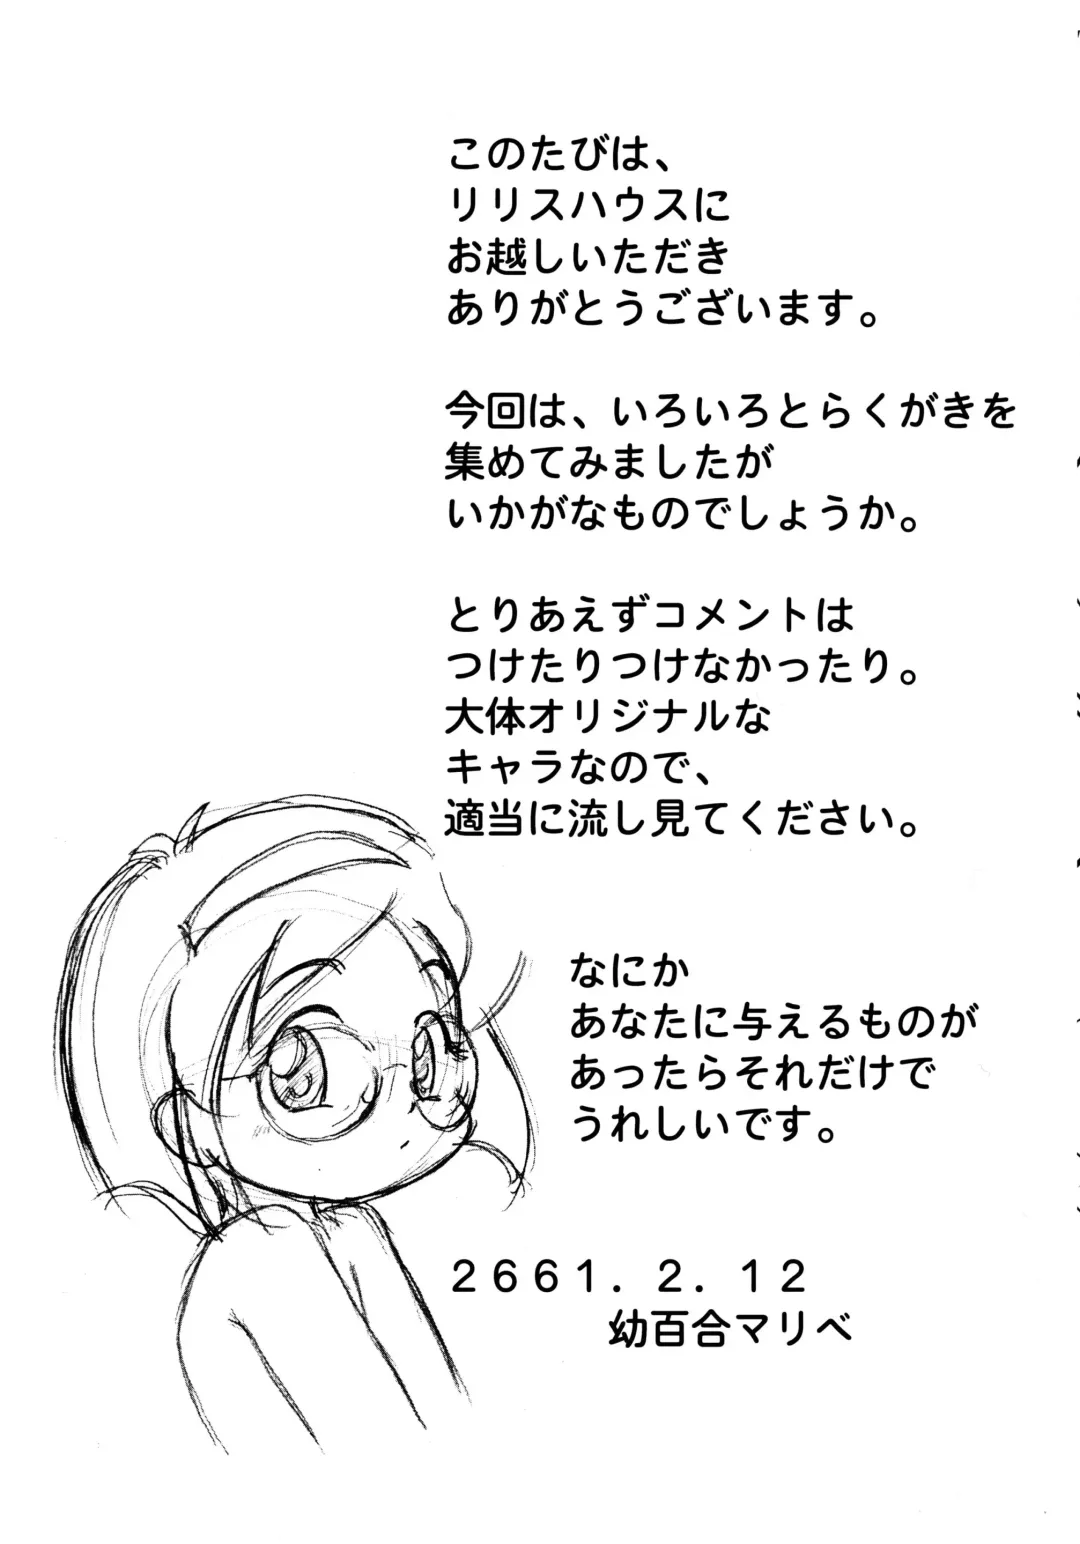 このたびは、
リリスハウスに
お越しいただき
ありがとうございます。
今回は、いろいろとらくがきを
集めてみましたが
いかがなものでしょうか。
とりあえずコメントは
つけたりつけなかったり。
大体オリジナルな
キャラなので、
適当に流し見てください。
なにか
あなたに与えるものが
あったらそれだけで
うれしいです。
２６６１．２．１２
幼百合マリベ